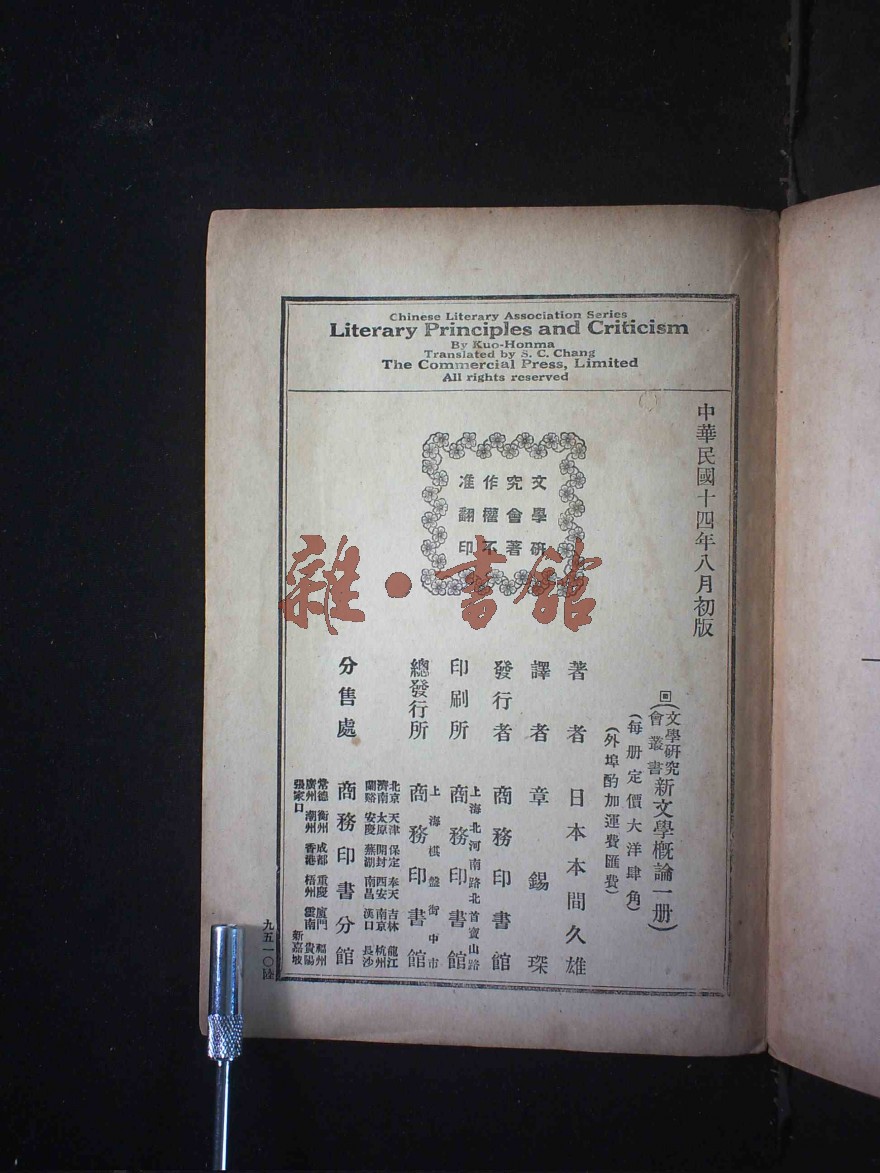 Chinese Literary Association Series
Literary Principles and Criticism
By Kuo-Honma
Translated by S. C. Chang
The Commercial Press, Limited
All rights reserved
中華民國十四年八月初版
文學研
究會著
作權不
准翻印
(文學研究會叢書新文學概論一册)
(每册定價大洋肆角)
(外埠酌加運費匯費)
著者 日本本間久雄
譯者 章錫琛
發行者 商務印書館
印刷所 上海北河南路北首寶山路 商務印書館
總發行所 上海棋盤街中市 商務印書館
分售處 商務印書分館
北京 天津 保定 奉天 吉林 龍江
濟南 太原 開封 西安 南京 杭州
蘭谿 安慶 蕪湖 南昌 漢口 長沙
常德 衡州 成都 重慶 廈門 福州
廣州 潮州 香港 梧州 雲南 貴陽
張家口 新嘉坡
九五一〇陸
雜·書館